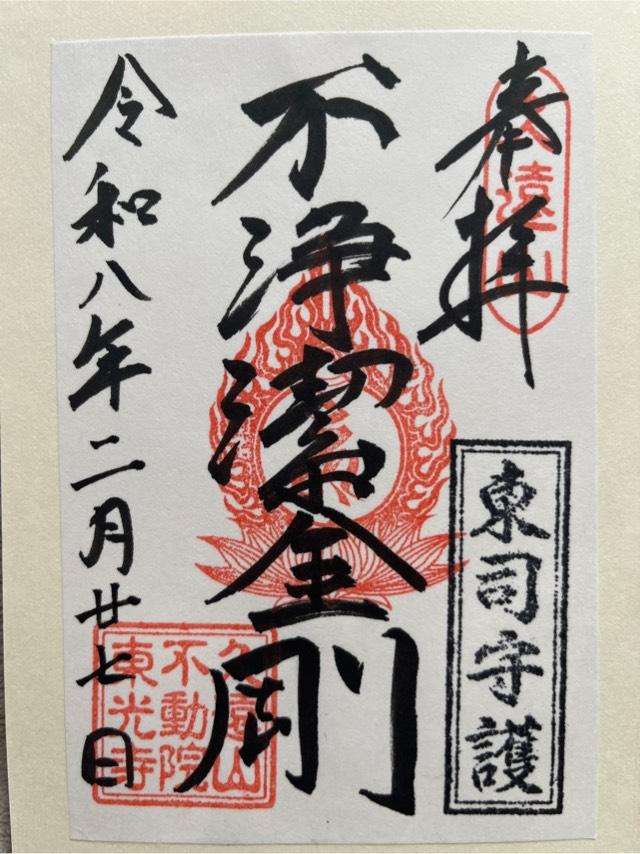 奉拝
久遠山
東司守護
不浄潔金剛
令和八年二月廿七日
久遠山
不動院
東光寺